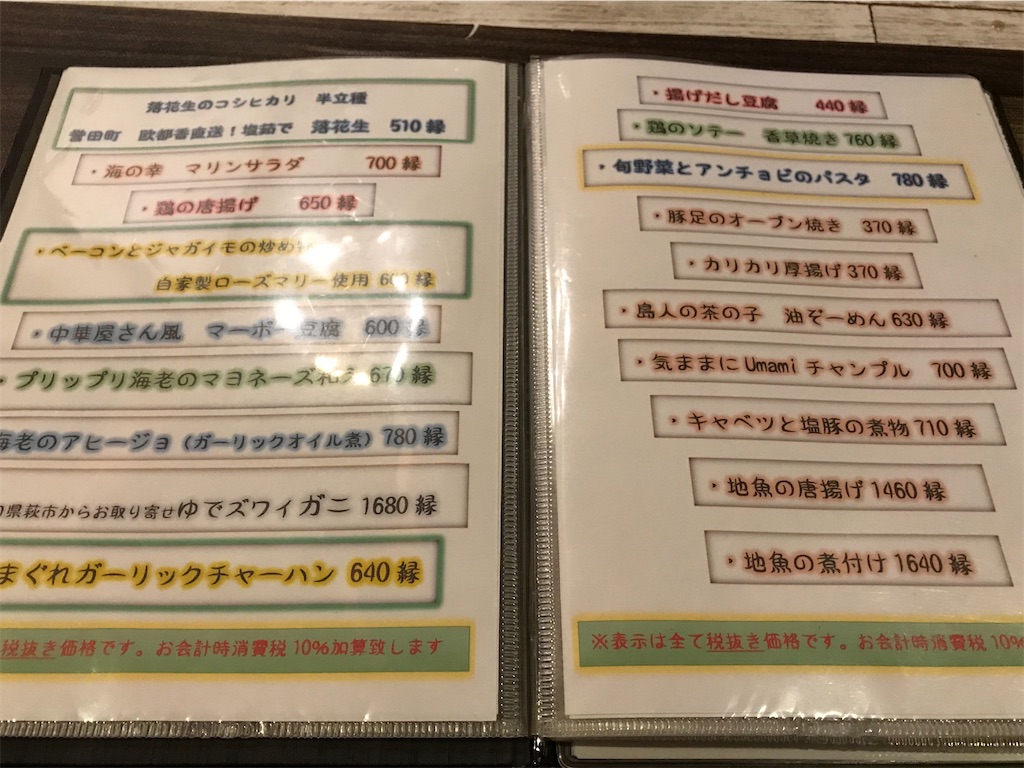 落花生のコシヒカリ 半立種
誉田町 欧都香直送！塩茹で 落花生 510縁
・海の幸 マリンサラダ 700縁
・鶏の唐揚げ 650縁
・ベーコンとジャガイモの炒め
自家製ローズマリー使用 6 0縁
・中華屋さん風 マーボー豆腐 600縁
・プリップリ海老のマヨネーズ和え 670縁
海老のアヒージョ（ガーリックオイル煮）780縁
県萩市からお取り寄せゆでズワイガニ 1680縁
まぐれガーリックチャーハン 640縁
税抜き価格です。お会計時消費税10%加算致します
・揚げだし豆腐 440縁
・鶏のソテー 香草焼き760縁
・旬野菜とアンチョビのパスタ 780縁
・豚足のオーブン焼き 370縁
・カリカリ厚揚げ370縁
・島人の茶の子 油ぞーめん630縁
・気ままにUmamiチャンプル 700縁
・キャベツと塩豚の煮物710縁
・地魚の唐揚げ1460縁
・地魚の煮付け1640縁
※表示は全て税抜き価格です。お会計時消費税10%